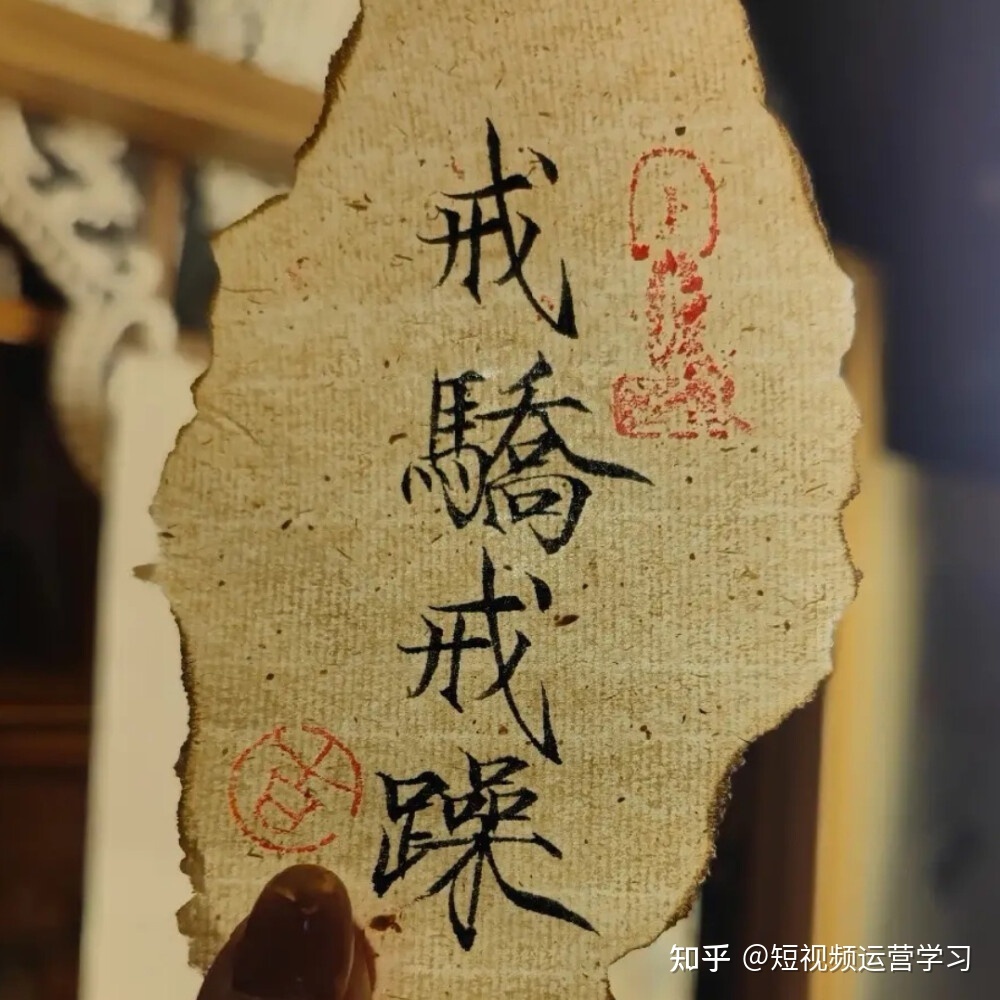 戒驕戒躁
知乎 @短视频运营学习